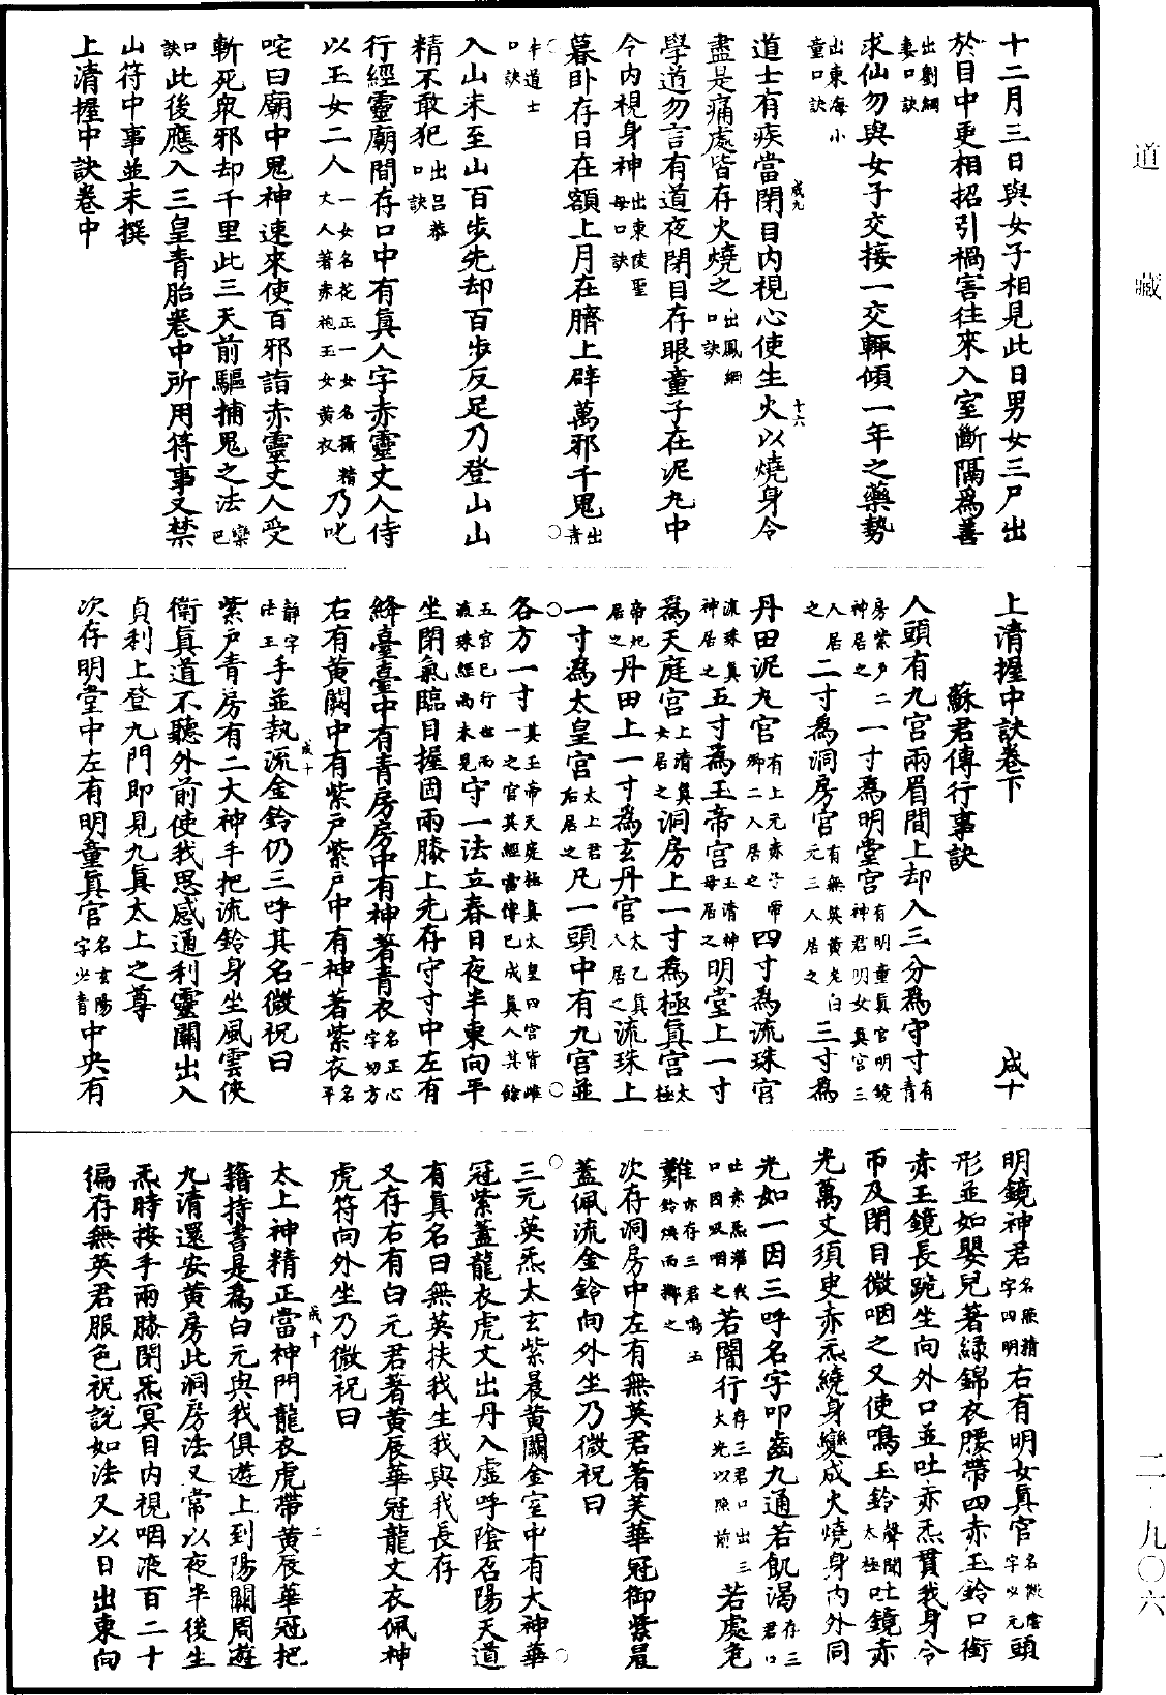 道藏
二·九〇六
十二月三日與女子相見此日男女三尸出
於目中更相招引禍害往來入室斷隔為善
出劉綱妻口訣
求仙勿與女子交接一交輒傾一年之藥勢
出東海小童口訣
道士有疾當閉目內視心使生火以燒身令
盡是痛處皆存火燒之出鳳綱口訣
學道勿言有道夜閉目存眼童子在泥丸中
令內視身神出東陵聖母口訣
暮卧存日在額上月在臍上辟萬邪千鬼出青
牛道士口訣
入山未至山百步先却百步反足乃登山山
精不敢犯出呂恭口訣
行經靈廟間存口中有真人字赤靈丈人侍
以玉女二人一女名花正一女名攝精丈人著赤袍玉女黃衣乃叱
咤曰廟中鬼神速來使百邪詣赤靈丈人受
斬死眾邪却千里此三天前驅捕鬼之法欒巴
口訣此後應入三皇青胎卷中所用符事又禁
山符中事並未撰
上清握中訣卷中
咸九
十六
上清握中訣卷下
咸十
蘇君傳行事訣
人頭有九宮兩眉間上却入三分為守寸有青
房紫戶二神居之一寸為明堂宮有明童真官明鏡神君明女真官三
人居之二寸為洞房宮有無英黃老白元三人居之三寸為
丹田泥丸宮有上元赤子帝卿二人居之四寸為流珠宮
流珠真神居之五寸為玉帝宮玉清神母居之明堂上一寸
為天庭宮上清真女居之洞房上一寸為極真宮太極
帝妃居之丹田上一寸為玄丹宮太乙真人居之流珠上
一寸為太皇宮太上君后居之凡一頭中有九宮並
各方一寸其玉帝天庭極真太皇四宮皆雌一之宮其經當傳已成真人其餘
五宮已行世而流珠經尚未見守一法立春日夜半東向平
坐閉氣臨目握固兩膝上先存守寸中左有
絳臺臺中有青房房中有神著青衣名正心字切方
右有黃闕中有紫戶紫戶中有神著紫衣名平
靜字法王手並執流金鈴仍三呼其名微祝曰
紫戶青房有二大神手把流鈴身坐風雲俠
衛真道不聽外前使我思感通利靈關出入
貞利上登九門即見九真太上之尊
次存明堂中左有明童真官名玄陽字少青中央有
咸十
一
明鏡神君名照精字四明右有明女真官名微陰字少元頭
形並如嬰兒著綠錦衣腰帶四赤玉鈴口銜
赤玉鏡長跪坐向外口並吐赤炁貫我身令
帀及閉目微咽之又使鳴玉鈴聲聞太極吐鏡赤
光萬丈須臾赤炁繞身變成火燒身內外同
光如一因三呼名字叩齒九通若飢渴存三君口
吐赤炁灌我口因吸咽之若闇行存三君口出三火光以照前若處危
難亦存三君鳴玉鈴煥而擲之
次存洞房中左有無英君著芙華冠御紫晨
蓋佩流金鈴向外坐乃微祝曰
三元英炁太玄紫晨黃闕金室中有大神華
冠紫蓋龍衣虎文出丹入虛呼陰召陽天道
有真名曰無英扶我生我與我長存
又存右有白元君著黃晨華冠龍文衣佩神
虎符向外坐乃微祝曰
太上神精正當神門龍衣虎帶黃晨華冠把
籍持書是為白元與我俱遊上到陽關周遊
九清還安黃房此洞房法又常以夜半後生
炁時按手兩膝閉炁冥目內視咽液百二十
徧存無英君服色祝說如法又以日出東向
咸十
二